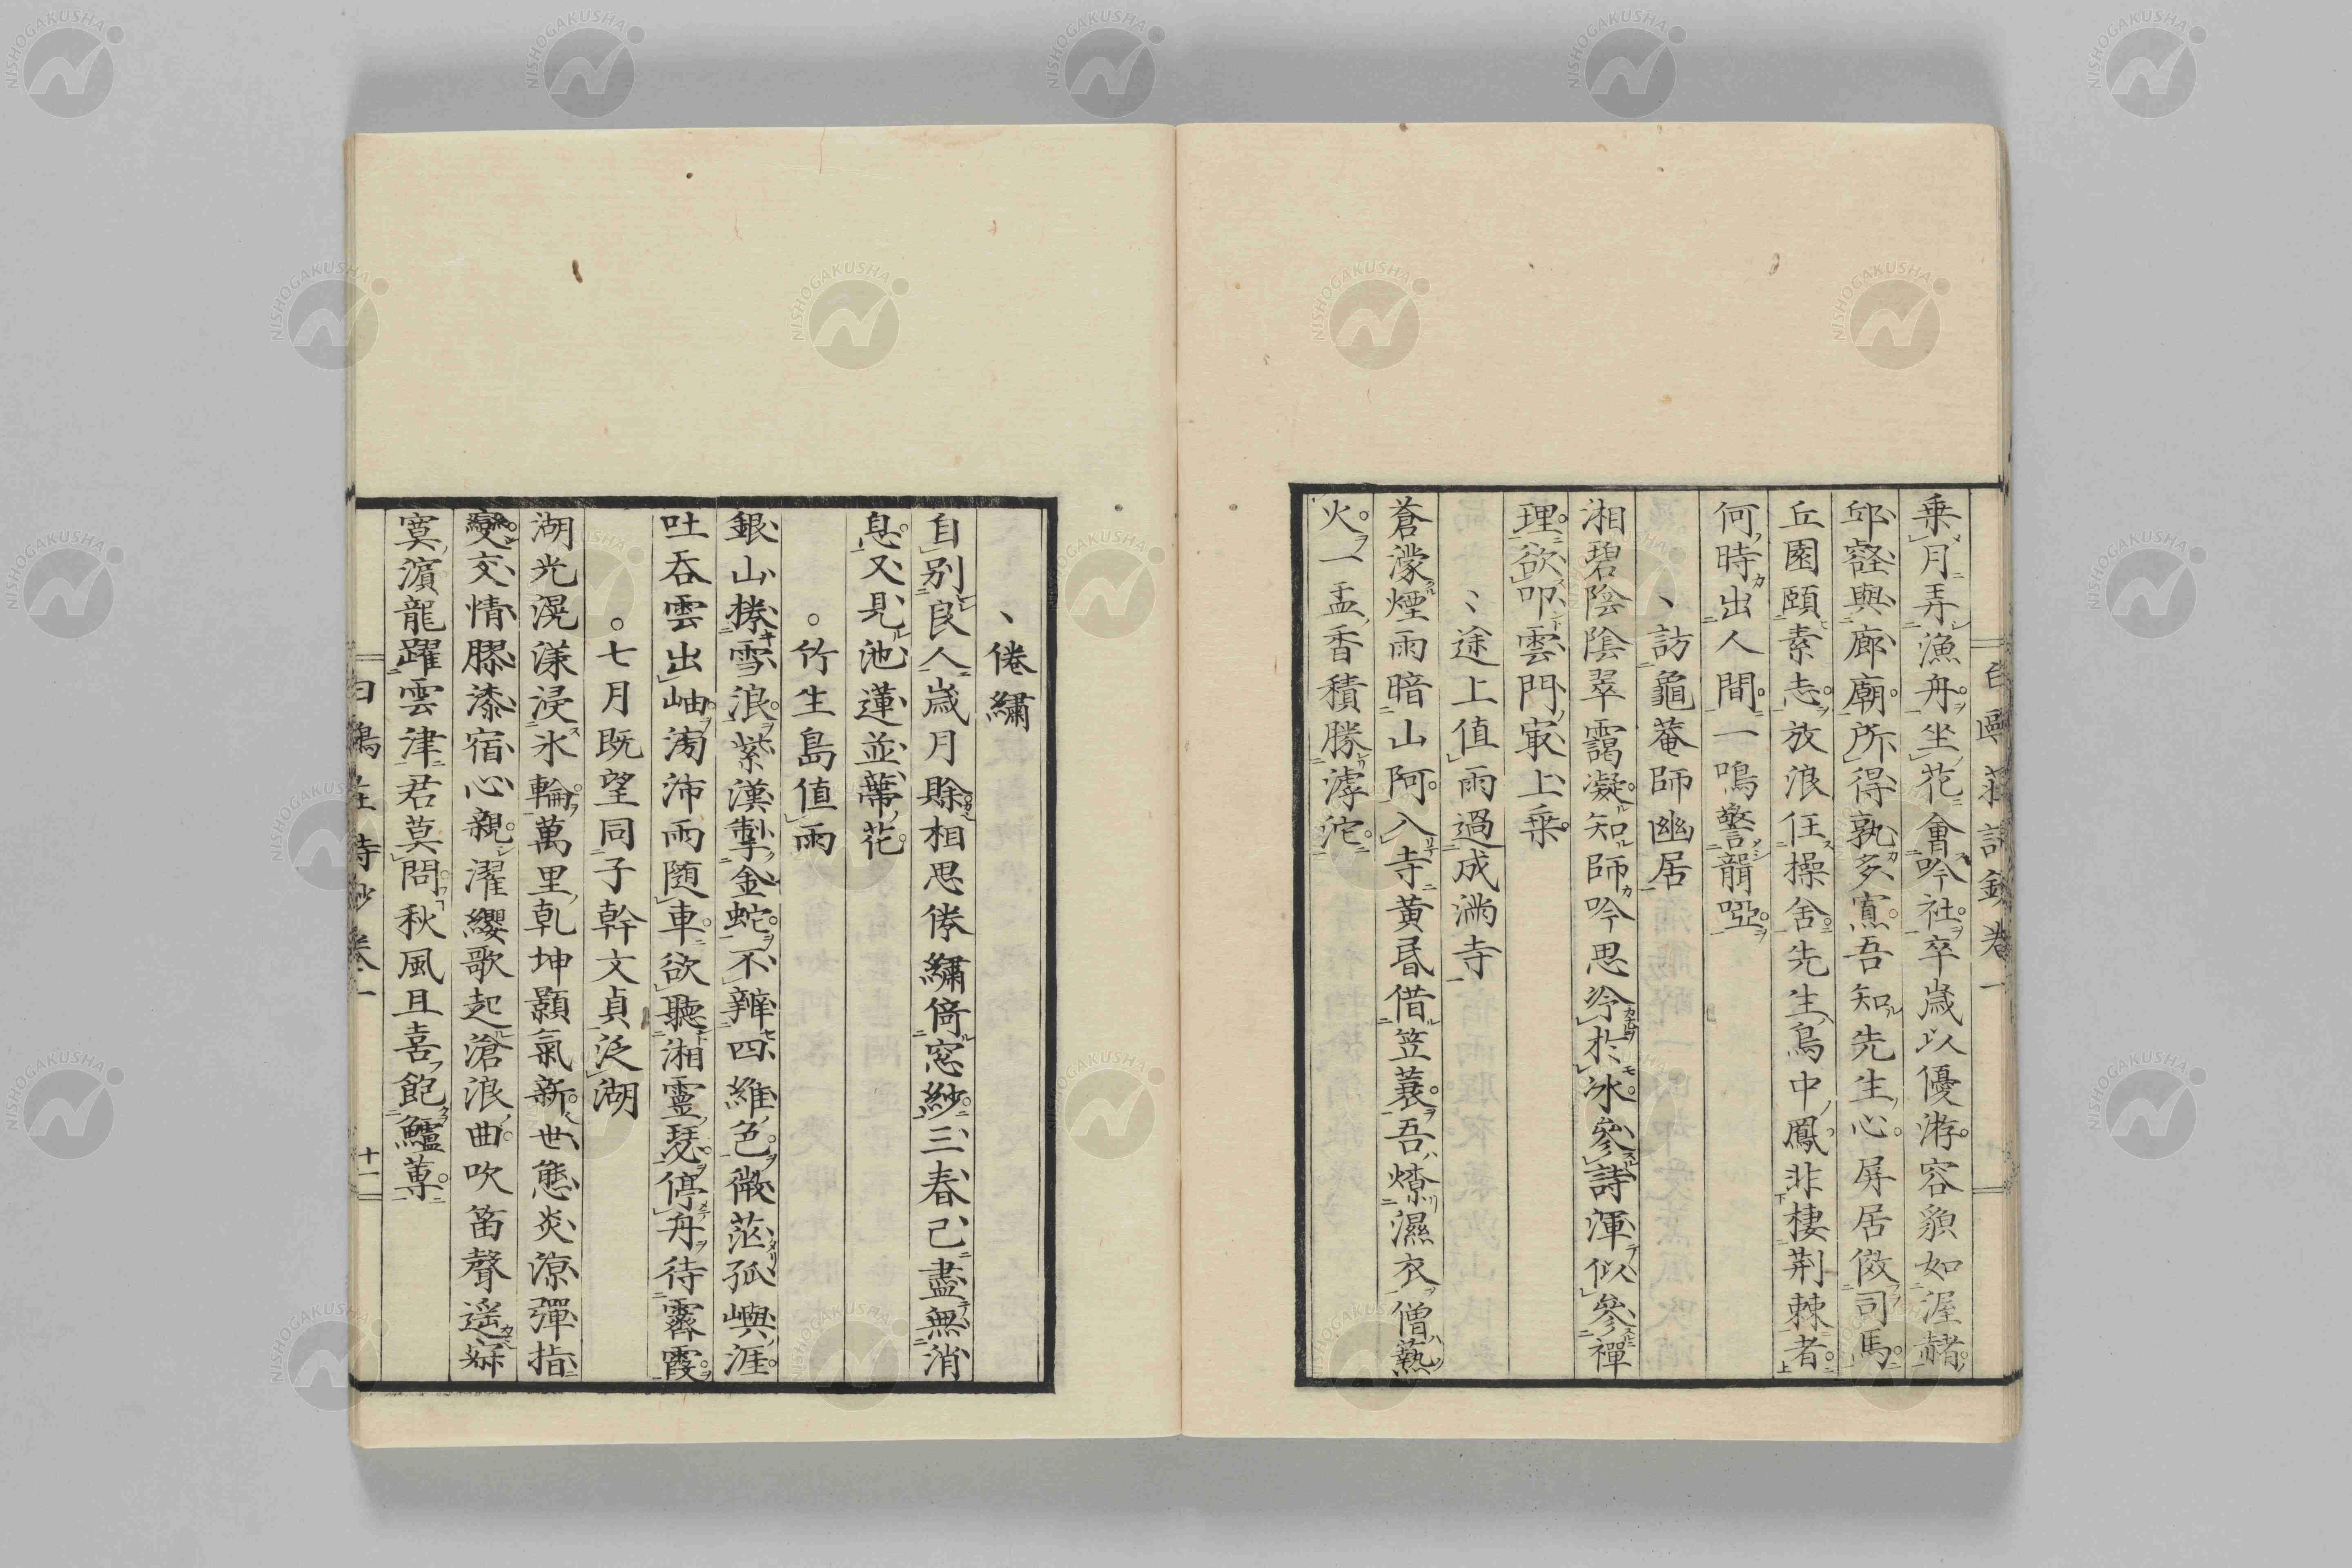 乗月弄漁舟坐花會吟社卒歲以優游容貌如渥赭
邱壑與廊廟所得孰多寡吾知先生心屏居傚司馬
丘園頤素志放浪任操舍先生鳥中鳳非棲荆棘者
何時出人間一鳴警聾啞
訪龜菴師幽居
湘碧陰陰翠靄凝知師吟思冷於冰參詩渾似參禪
理欲叩雲門最上乗
途上値雨過成滿寺
蒼濛煙雨暗山阿入寺黃昏借笠蓑吾燎濕衣僧爇
火一盂香積勝滹沱
倦繡
自別良人歲月賖相思倦繡倚窓紗三春已盡無消
息又見池蓮並蔕花
竹生島値雨
銀山捲雪浪紫漢掣金蛇不辨四維色微茫孤嶼涯
吐呑雲出岫滂沛雨随車欲聽湘靈瑟停舟待霽霞
七月既望同子幹文貞泛湖
湖光滉漾浸氷輪萬里乹坤顥氣新世態炎涼彈指
變交情膠漆宿心親濯纓歌起滄浪曲吹笛聲遥寂
寞濱龍躍雲津君莫問秋風且喜飽鱸蓴
白鷗莊詩鈔卷一
十一
NISHOGAKUSHA